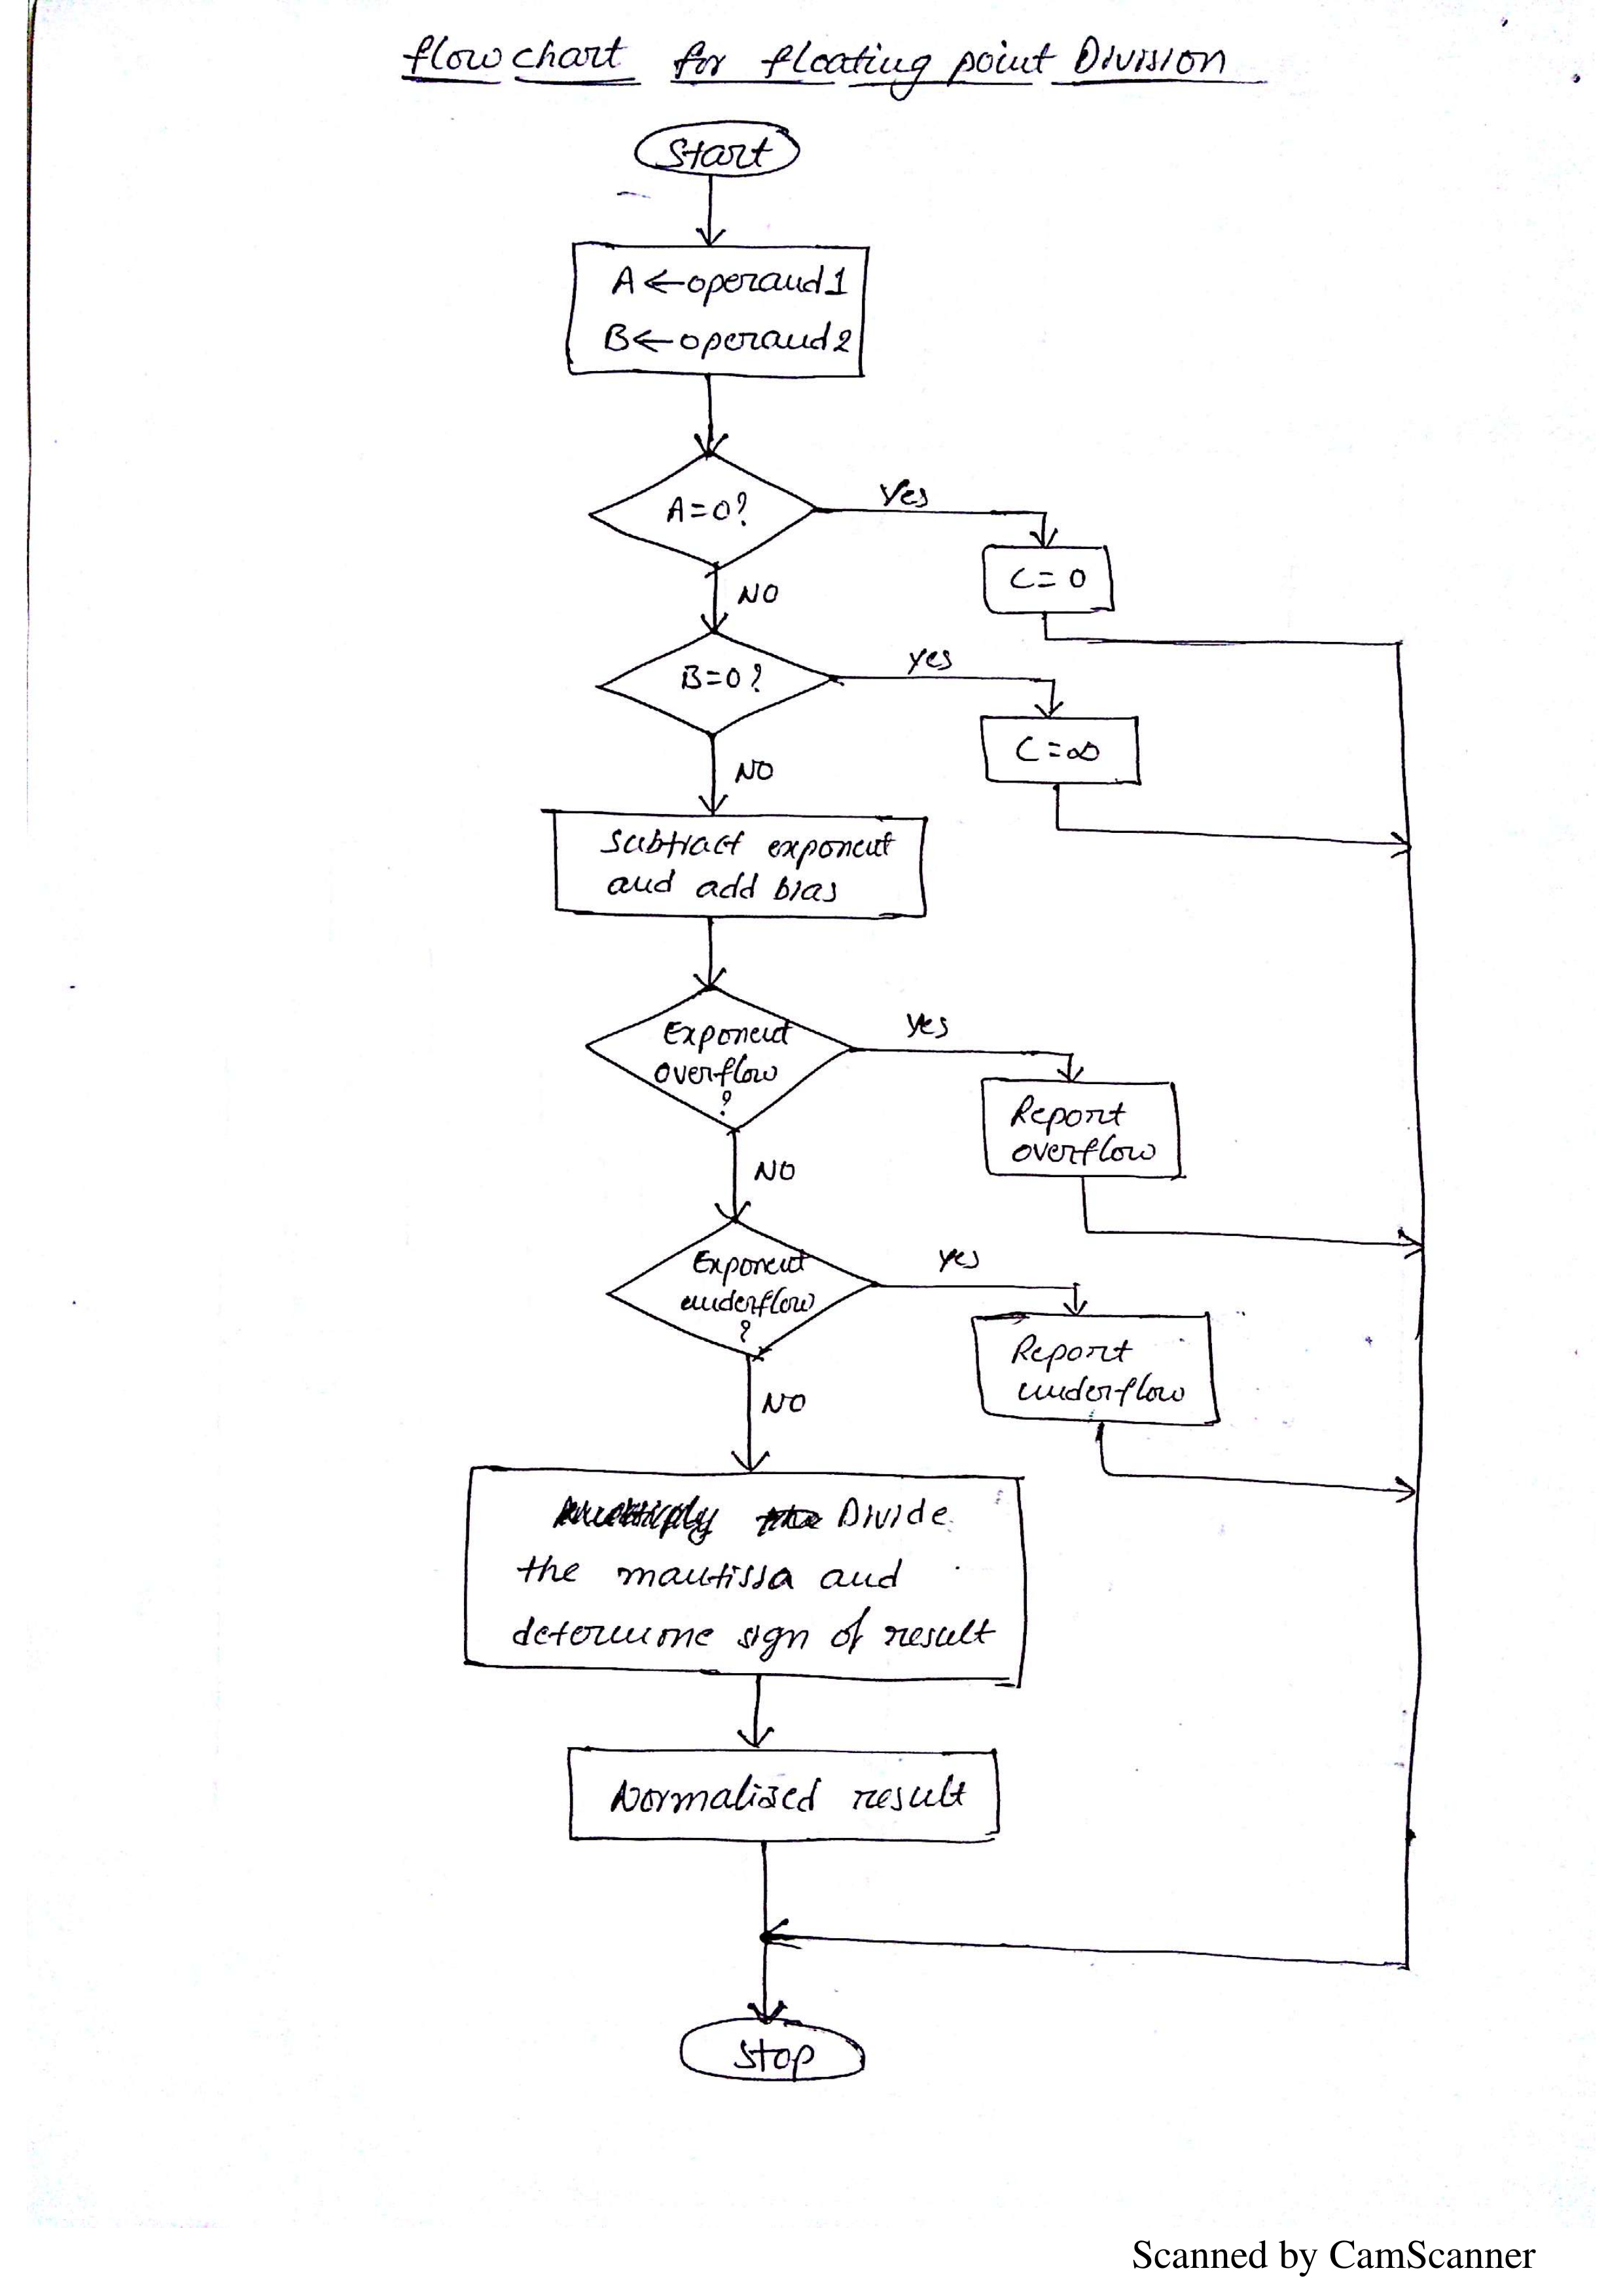 flow chart for floating point Division
Start
A ← operand 1
B ← operand 2
A = 0 ?
Yes
C = 0
NO
B = 0 ?
yes
C = ∞
NO
Subtract exponent
and add bias
Exponent
overflow
?
yes
Report
overflow
NO
Exponent
underflow
?
yes
Report
underflow
NO
Divide
the mantissa and
determine sign of result
Normalized result
Stop
Scanned by CamScanner